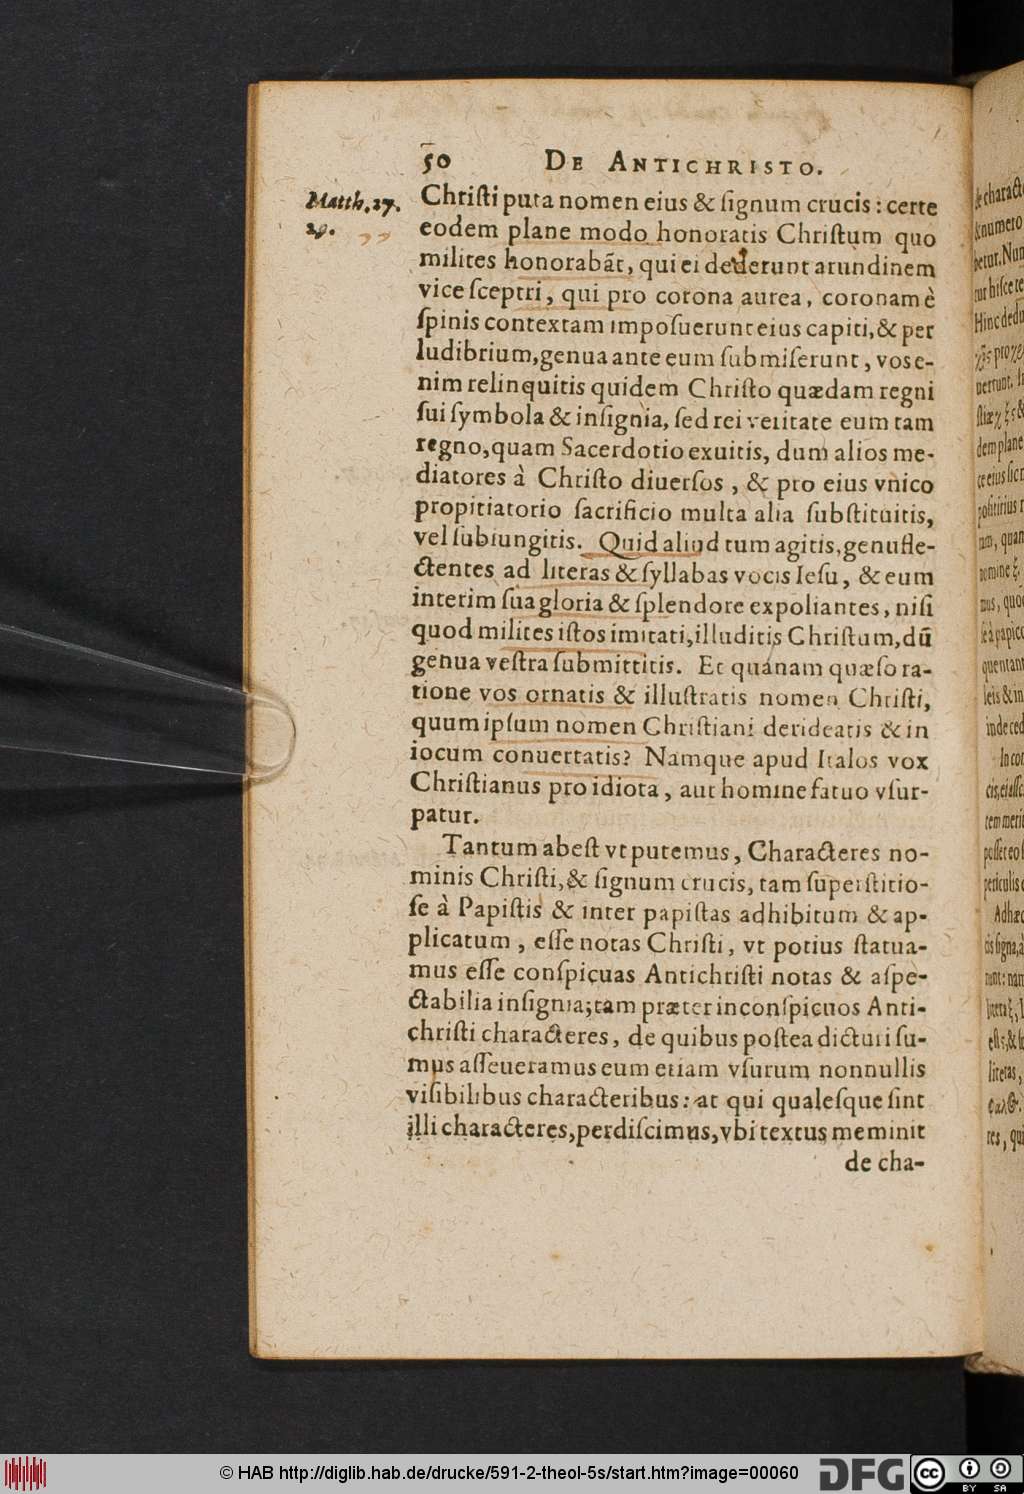 50 DE ANTICHRISTO.
Matth. 27.
29.
Chriſti puta nomen eius & ſignum crucis: certe
eodem plane modo honoratis Chriſtum quo
milites honorabāt, qui ei dederunt arundinem
vice ſceptri, qui pro corona aurea, coronam è
ſpinis contextam impoſuerunt eius capiti, & per
ludibrium, genua ante eum ſubmiſerunt, vos e-
nim relinquitis quidem Chriſto quædam regni
ſui ſymbola & inſignia, ſed rei veritate eum tam
regno, quam Sacerdotio exuitis, dum alios me-
diatores à Chriſto diuerſos, & pro eius vnico
propitiatorio ſacrificio multa alia ſubſtituitis,
vel ſubiungitis. Quid aliud tum agitis, genufle-
ctentes ad literas & ſyllabas vocis Ieſu, & eum
interim ſua gloria & ſplendore expoliantes, niſi
quod milites iſtos imitati, illuditis Chriſtum, dū
genua veſtra ſubmittitis. Et quánam quæſo ra-
tione vos ornatis & illuſtratis nomen Chriſti,
quum ipſum nomen Chriſtiani derideatis & in
iocum conuertatis? Namque apud Italos vox
Chriſtianus pro idiota, aut homine fatuo vſur-
patur.
Tantum abeſt vt putemus, Characteres no-
minis Chriſti, & ſignum crucis, tam ſuperſtitio-
ſe à Papiſtis & inter papiſtas adhibitum & ap-
plicatum, eſſe notas Chriſti, vt potius ſtatua-
mus eſſe conſpicuas Antichriſti notas & aſpe-
ctabilia inſignia; tam præter inconſpicuos Anti-
chriſti characteres, de quibus poſtea dicturi ſu-
mus aſſeueramus eum etiam vſurum nonnullis
viſibilibus characteribus: at qui qualeſque ſint
illi characteres, perdiſcimus, vbi textus meminit
de cha-
© HAB http://diglib.hab.de/drucke/591-2-theol-5s/start.htm?image=00060
DFG
cc BY SA